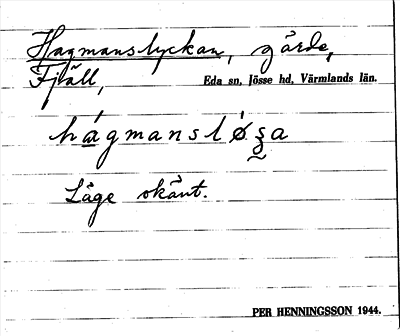 Hagmanslyckan, gärde,
Fjäll, Eda sn, Jösse hd, Värmlands län.
Läge okänt.
PER HENNINGSSON 1944.